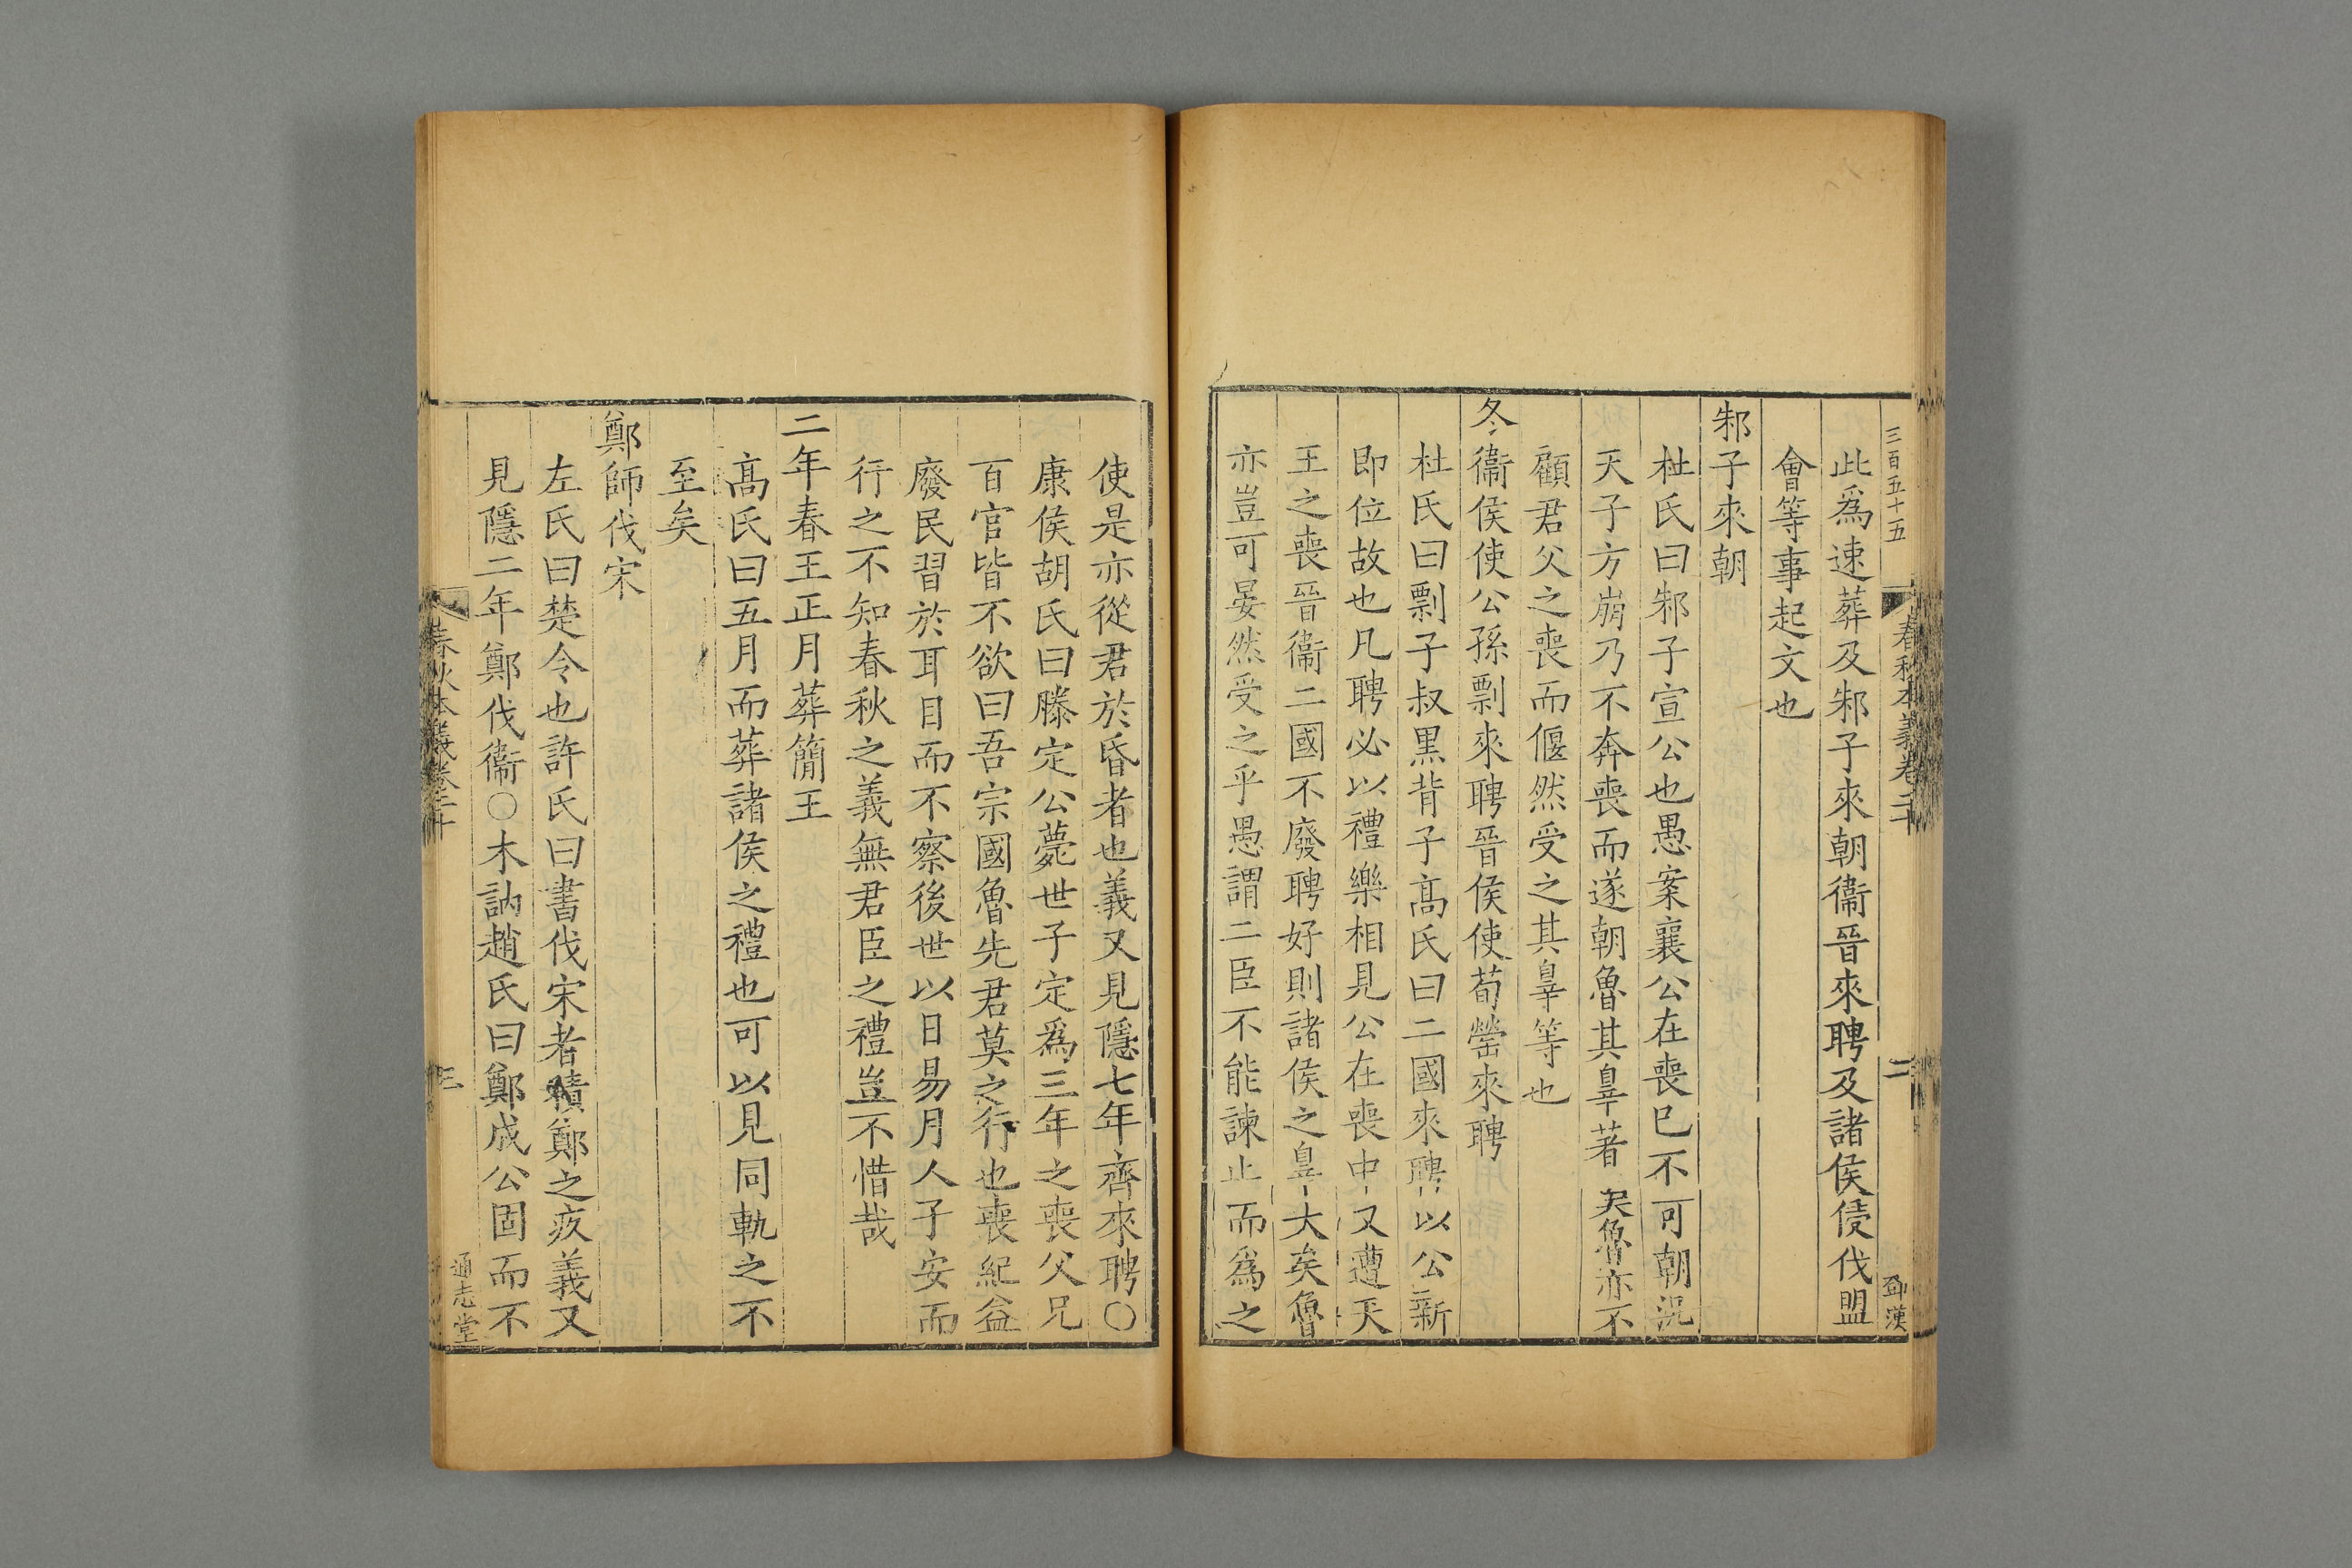 三百五十五
春秋本義卷二十
二
鄧漢
此爲速葬及邾子來朝衞晉來聘及諸侯侵伐盟
會等事起文也
邾子來朝
杜氏曰邾子宣公也愚案襄公在喪巳不可朝況
天子方崩乃不奔喪而遂朝魯其辠著矣魯亦不
顧君父之喪而偃然受之其辠等也
冬衞侯使公孫剽來聘晉侯使荀罃來聘
杜氏曰剽子叔黑背子髙氏曰二國來聘以公新
即位故也凡聘必以禮樂相見公在喪中又遭天
王之喪晉衞二國不廢聘好則諸侯之辠大矣魯
亦豈可晏然受之乎愚謂二臣不能諫止而爲之
使是亦從君於昏者也義又見隱七年齊來聘〇
康侯胡氏曰滕定公薨世子定爲三年之喪父兄
百官皆不欲曰吾宗國魯先君莫之行也喪紀益
廢民習於耳目而不察後世以日易月人子安而
行之不知春秋之義無君臣之禮豈不惜哉
二年春王正月葬簡王
髙氏曰五月而葬諸侯之禮也可以見同軌之不
至矣
鄭師伐宋
左氏曰楚令也許氏曰書伐宋者積鄭之疚義又
見隱二年鄭伐衞〇木訥趙氏曰鄭成公固而不
春秋本義卷二十
三
通志堂